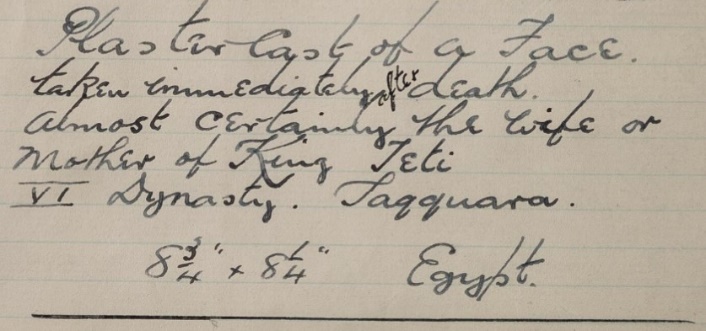 Plaster Cast of a Face.
taken immediately after death.
almost certainly the wife or
Mother of King Teti
VI Dynasty. Saqquara.
8 3/4" x 8 1/4" Egypt.